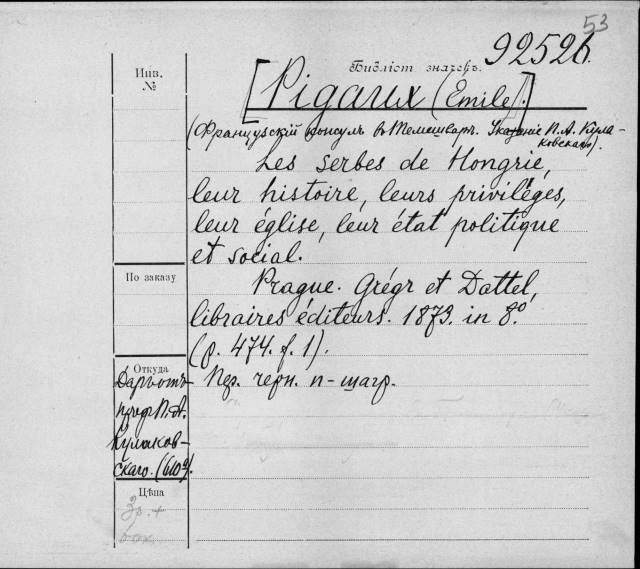 53
92526.
Инв.
№
Библіот значекъ.
[Pigaux (Emile).]
(Французскій консулъ въ Темешварѣ. Указаніе П. А. Кула-
ковскаго).
Les serbes de Hongrie,
leur histoire, leurs privilèges,
leur église, leur état politique
et social.
По заказу
Prague. Grégr et Dattel,
libraires éditeurs. 1873. in 8º.
(p. 474. f. 1).
Откуда
Даръ отъ
проф. П. А.
Кулаков-
скаго.
Пер. черн. п-шагр.
Цѣна
3р. +